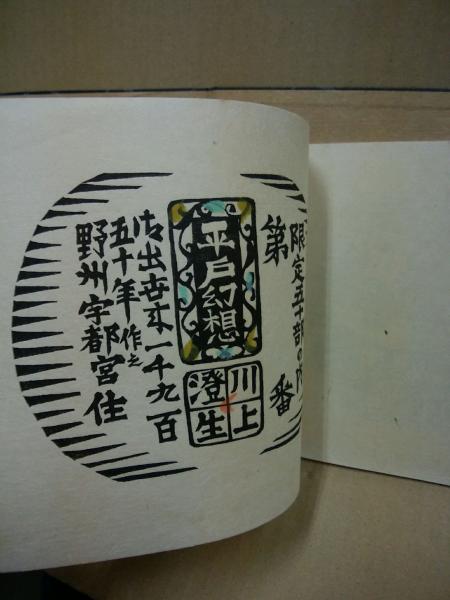 限定五十部の内
第 番
平戸幻想
川上
澄生
御出世来一千九百
五十年作之
野州宇都宮住